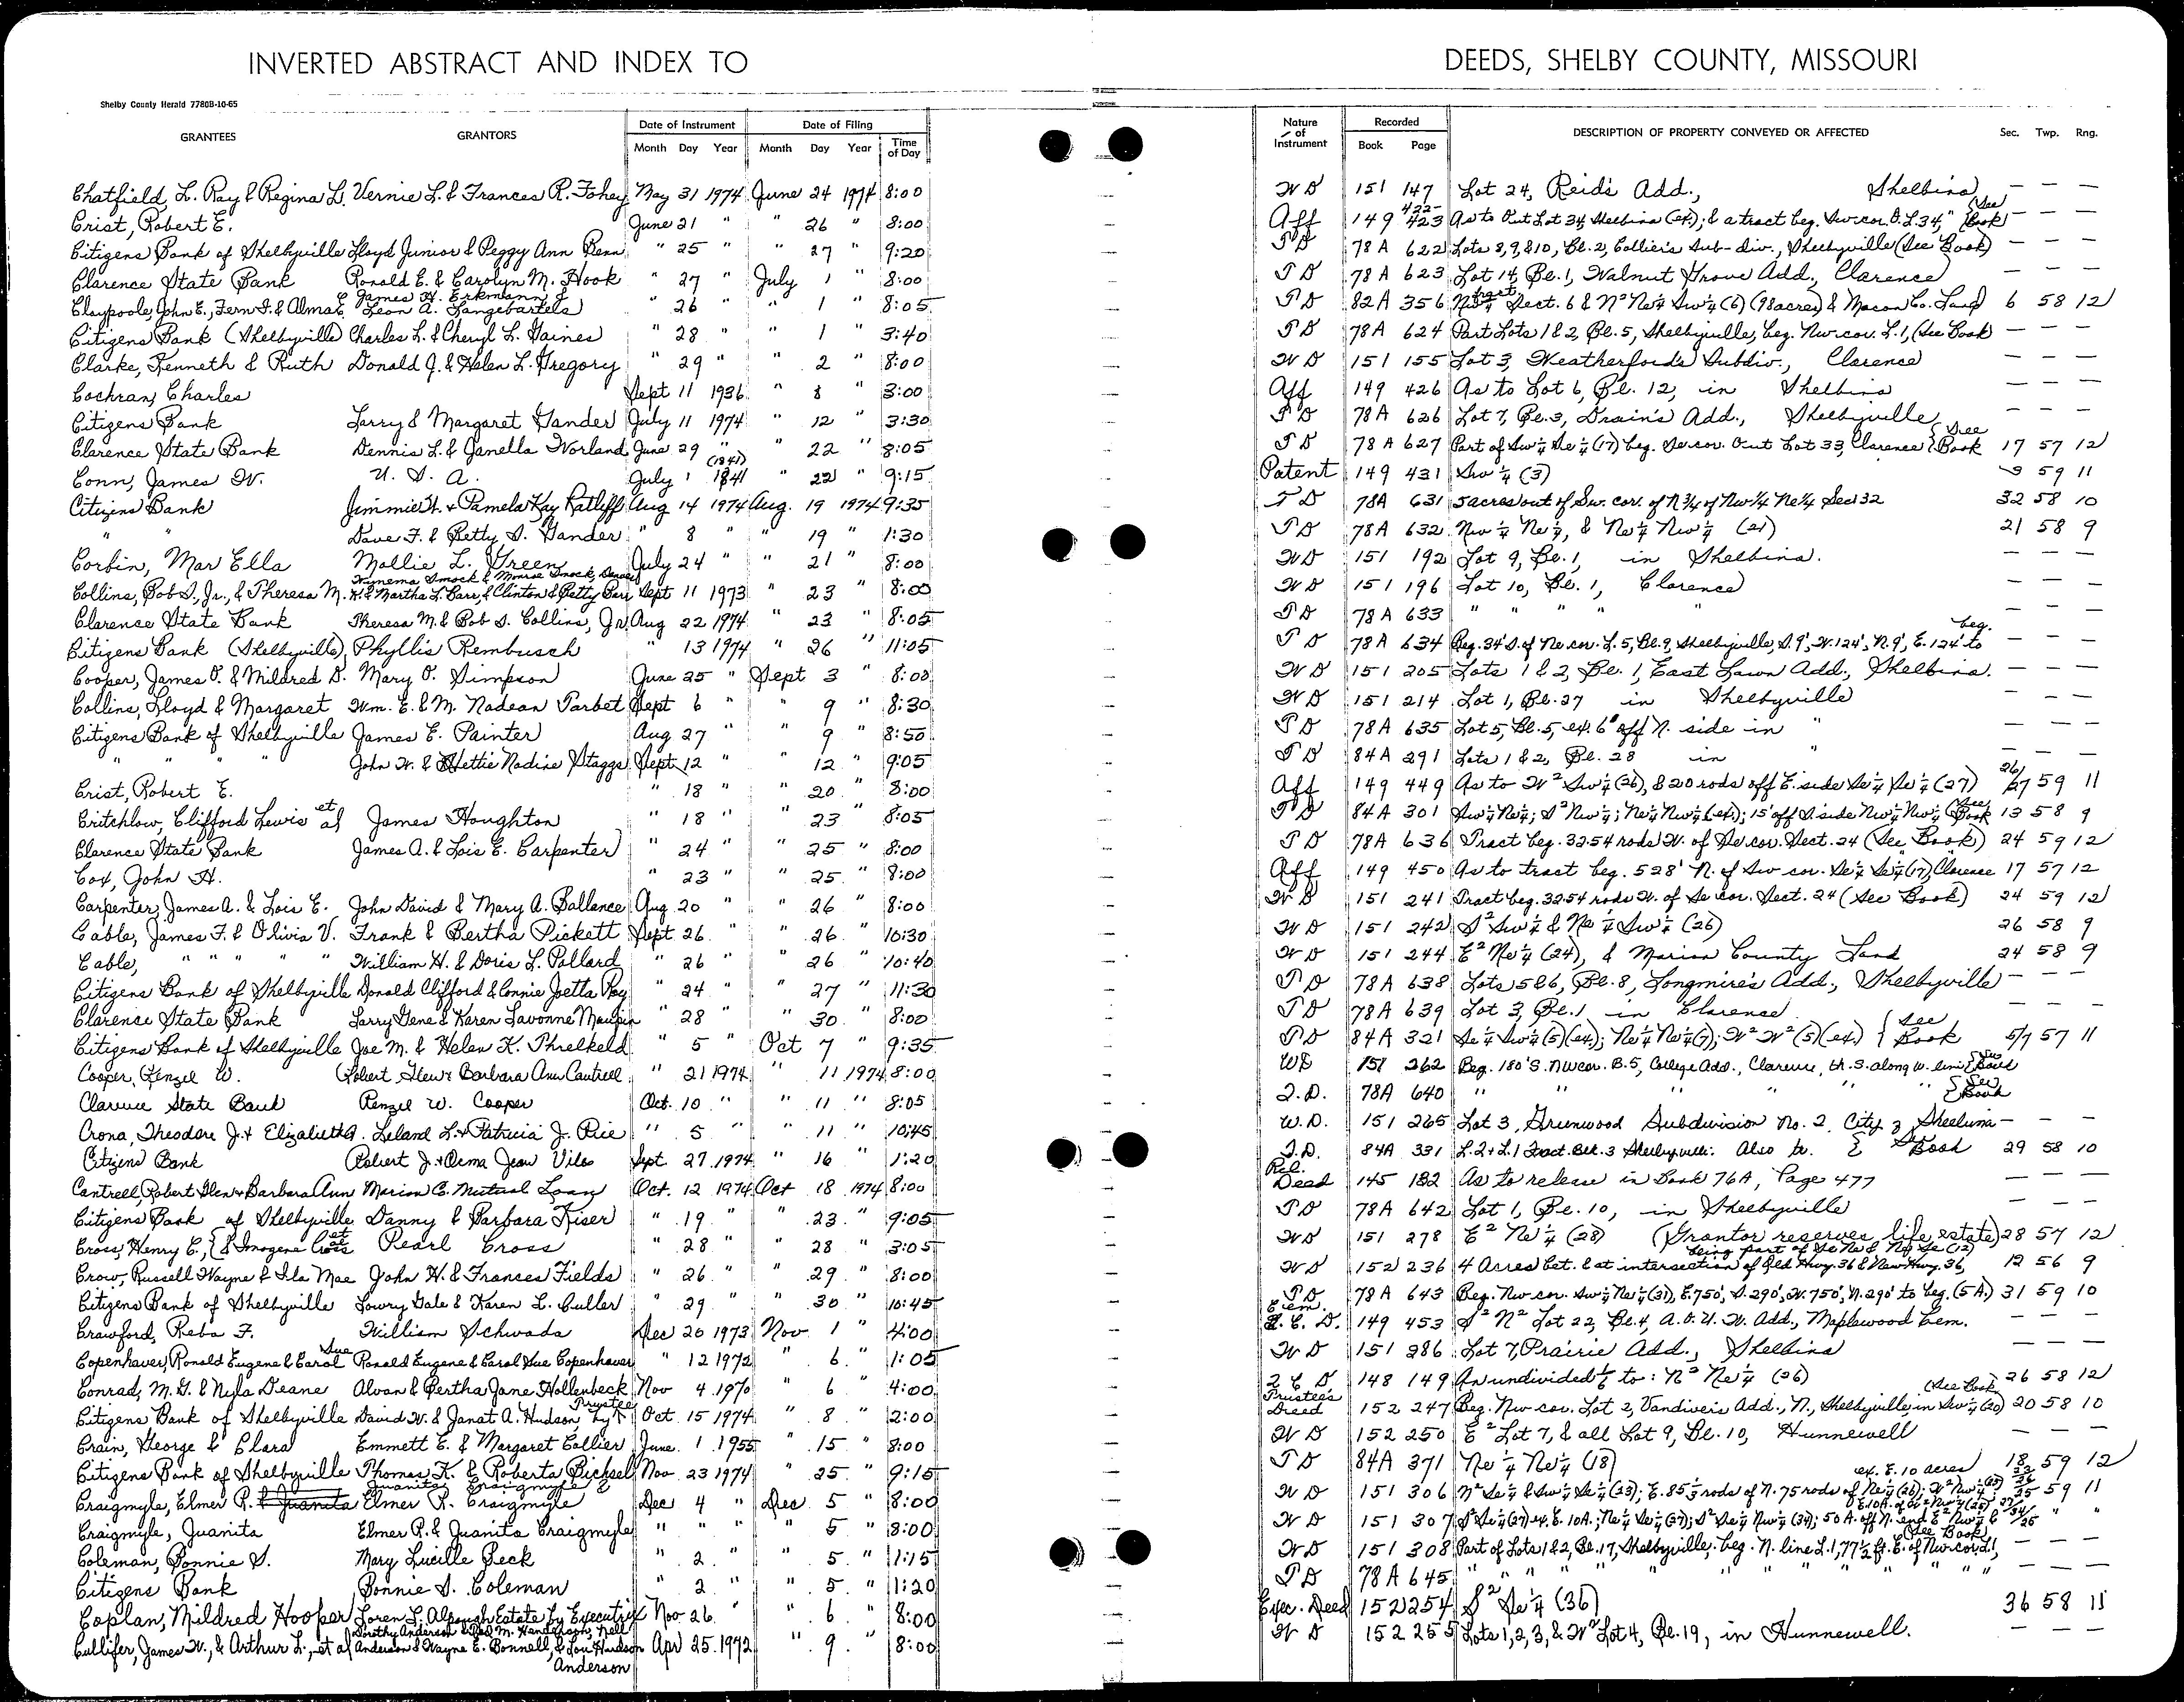 INVERTED ABSTRACT AND INDEX TO DEEDS, SHELBY COUNTY, MISSOURI
Shelby County Herald 7780B-10-65
GRANTEES GRANTORS Date of Instrument Date of Filing Time of Day Nature of Instrument Recorded DESCRIPTION OF PROPERTY CONVEYED OR AFFECTED Sec. Twp. Rng.
Month Day Year Month Day Year Book Page
Chatfield, L. Ray & Regina L. Vernie L. & Frances R. Fohey May 31 1974 June 24 1974 8:00 W D 151 147 Lot 24, Reid's Add., Shelbina — — —
Crist, Robert E. June 21 " " 26 " 8:00 Aff 149 422-423 As to Out Lot 34, Shelbina (ex.); & a tract beg. Sw. cor. O. L. 34, " (See Book) — — —
Citizens Bank of Shelbyville Lloyd Junior & Peggy Ann Penn " 25 " " 27 " 9:20 T D 78 A 622 Lots 8, 9, & 10, Bl. 2, Collier's Sub-div., Shelbyville (See Book) — — —
Clarence State Bank Ronald E. & Carolyn M. Hook " 27 " July 1 " 8:00 T D 78 A 623 Lot 14, Bl. 1, Walnut Grove Add., Clarence — — —
Claypoole, John E., Fern I. & Alma E. James H. Erkmann & Leon A. Langebartels " 26 " " 1 " 8:05 T D 82A 356 Sect. 6 & N² Ne¼ Sw¼ (6) (98 acres) & Macon Co. Land 6 58 12
Citizens Bank (Shelbyville) Charles L. & Cheryl L. Gaines " 28 " " 1 " 3:40 T D 78A 624 Part Lots 1 & 2, Bl. 5, Shelbyville, beg. Nw. cor. L. 1, (See Book — — —
Clarke, Kenneth & Ruth Donald J. & Helen L. Gregory " 29 " " 2 " 8:00 W D 151 155 Lot 3, Weatherford's Subdiv., Clarence — — —
Cochran, Charles Sept 11 1936 " 8 " 3:00 Aff 149 426 As to Lot 6, Bl. 12, in Shelbina — — —
Citizens Bank Larry & Margaret Gander July 11 1974 " 12 " 3:30 T D 78A 626 Lot 7, Bl. 3, Drain's Add., Shelbyville — — —
Clarence State Bank Dennis L. & Janella Norland June 29 " " 22 " 8:05 T D 78 A 627 Part of Sw¼ Se¼ (17) beg. Se. cor. Out Lot 33, Clarence {See Book 17 57 12
Conn, James W. U. S. A. July 1 1841 (1841) " 22 " 9:15 Patent 149 431 Sw¼ (3) 3 59 11
Citizens Bank Jimmie H. & Pamela Kay Ratliff Aug 14 1974 Aug. 19 1974 9:35 T D 78A 631 5 acres out of Sw. cor. of N ¾ of Nw ¼ Ne ¼ Sec 32 32 58 10
" " Dave F. & Betty S. Gander " 8 " " 19 " 1:30 T D 78A 632 Nw ¼ Ne ¼, & Ne ¼ Nw ¼ (21) 21 58 9
Corbin, Mar Ella Mollie L. Green July 24 " " 21 " 8:00 W D 151 192 Lot 9, Bl. 1, in Shelbina. — — —
Collins, Bob S., Jr., & Theresa M. Wynema Smock & Monroe Smock, H. & Martha L. Barr, & Clinton & Betty Barr Sept 11 1973 " 23 " 8:00 W D 151 196 Lot 10, Bl. 1, Clarence — — —
Clarence State Bank Theresa M. & Bob S. Collins, Jr. Aug 22 1974 " 23 " 8:05 T D 78 A 633 " " " " " — — —
Citizens Bank (Shelbyville) Phyllis Rembusch " 13 1974 " 26 " 11:05 T D 78 A 634 Beg. 34' S. of Ne. cor. L. 5, Bl. 9, Shelbyville, S. 9', W. 124', N. 9', E. 124' to beg. — — —
Cooper, James O. & Mildred D. Mary O. Simpson June 25 " Sept 3 " 8:00 W D 151 205 Lots 1 & 2, Bl. 1, East Lawn Add., Shelbina. — — —
Collins, Lloyd & Margaret Wm. E. & M. Nadean Tarbet Sept 6 " " 9 " 8:30 W D 151 214 Lot 1, Bl. 27 in Shelbyville — — —
Citizens Bank of Shelbyville James E. Painter Aug 27 " " 9 " 8:50 T D 78A 635 Lot 5, Bl. 5, ex. 6' off N. side in " — — —
" " " " John W. & Hettie Nadine Staggs Sept. 12 " " 12 " 9:05 T D 84A 291 Lots 1 & 2, Bl. 28 in " — — —
Crist, Robert E. " 18 " " 20 " 8:00 Aff 149 449 As to W² Sw¼ (26), & 20 rods off E. side Se¼ Se¼ (27) 26/27 59 11
Critchlow, Clifford Lewis et al James Houghton " 18 " " 23 " 8:05 T D 84A 301 Sw¼ Ne¼; S² Nw¼; Ne¼ Nw¼ (ex.); 15' off S. side Nw¼ Nw¼ (See Book 13 58 9
Clarence State Bank James A. & Lois E. Carpenter " 24 " " 25 " 8:00 T D 78A 636 Tract beg. 32.54 rods W. of Se. cor. Sect. 24 (See Book) 24 59 12
Cox, John H. " 23 " " 25 " 8:00 Aff 149 450 As to tract beg. 528' N. of Sw. cor. Se¼ Se¼ (17), Clarence 17 57 12
Carpenter, James A. & Lois E. John David & Mary A. Ballance Aug 20 " " 26 " 8:00 W D 151 241 Tract beg. 32.54 rods W. of Se. cor. Sect. 24 (See Book) 24 59 12
Cable, James F. & Olivia V. Frank & Bertha Pickett Sept 26 " " 26 " 10:30 W D 151 242 S² Sw¼ & Ne ¼ Sw¼ (26) 26 58 9
Cable, " " " " William H. & Doris L. Pollard " 26 " " 26 " 10:40 W D 151 244 E² Ne¼ (24), & Marion County Land 24 58 9
Citizens Bank of Shelbyville Donald Clifford & Connie Joetta Roy " 24 " " 27 " 11:30 T D 78A 638 Lots 5 & 6, Bl. 8, Longmire's Add., Shelbyville — — —
Clarence State Bank Larry Gene & Karen Lavonne Maupin " 28 " " 30 " 8:00 T D 78A 639 Lot 3, Bl. 1 in Clarence — — —
Citizens Bank of Shelbyville Joe M. & Helen K. Threlkeld " 5 " Oct 7 " 9:35 T D 84A 321 Se¼ Sw¼ (5) (ex.); Ne¼ Ne¼ (7); W² W² (5) (ex.) {See Book 5/7 57 11
Cooper, Renzel W. Robert Glen & Barbara Ann Cantrell " 21 1974 " 11 1974 8:00 WD 151 262 Beg. 180' S. NW cor. B. 5, College Add., Clarence, th. S. along W. line {See Book
Clarence State Bank Renzel W. Cooper Oct. 10 " " 11 " 8:05 T.D. 78A 640 " " " " {See Book
Crona, Theodore J. & Elizabeth A. Leland L. & Patricia J. Rice " 5 " 11 " 10:45 W.D. 151 265 Lot 3, Greenwood Subdivision No. 2, City of Shelbina — — —
Citizens Bank Robert J. & Orma Jean Viles Sept. 27 1974 " 16 " 1:20 T.D. 84A 331 L. 2 & L. 1 Tract. Blk. 3 Shelbyville: Also tr. {See Book 29 58 10
Cantrell, Robert Glen & Barbara Ann Marion C. Mutual Loan Oct. 12 1974 Oct 18 1974 8:00 Rel. Deed 145 182 As to release in Book 76A, Page 477 — — —
Citizens Bank of Shelbyville Danny & Barbara Kiser " 19 " " 23 " 9:05 T D 78A 642 Lot 1, Bl. 10, in Shelbyville — — —
Cross, Henry C., {& Imogene Cross et al Pearl Cross " 28 " " 28 " 3:05 W D 151 278 E² Ne¼ (28) (Grantor reserves life estate) 28 57 12
Crow, Russell Wayne & Ila Mae John H. & Frances Fields " 26 " " 29 " 8:00 W D 152 236 4 Acres bet. & at intersection of Old Hwy. 36 & New Hwy. 36, being part of Se Ne & Ne Se (12) 12 56 9
Citizens Bank of Shelbyville Lowry Gale & Karen L. Culler " 29 " " 30 " 10:45 T D 78 A 643 Beg. Nw. cor. Sw¼ Ne¼ (31), E. 750', S. 290', W. 750', N. 290' to beg. (5 A.) 31 59 10
Crawford, Reba F. William Schwada Dec 20 1973 Nov. 1 " 4:00 Cem. D. 149 453 S² N² Lot 22, Bl. 4, A. O. U. W. Add., Maplewood Cem. — — —
Copenhaver, Ronald Eugene & Carol Sue Ronald Eugene & Carol Sue Copenhaver " 12 1972 " 6 " 1:05 W D 151 286 Lot 7, Prairie Add., Shelbina — — —
Conrad, M. G. & Nyla Deane Alvan & Bertha Jane Hollenbeck Nov 4 1970 " 6 " 4:00 Q C D 148 149 An undivided ⅙ to: N² Ne¼ (26) 26 58 12
Citizens Bank of Shelbyville David W. & Janet A. Hudson, by Trustee Oct. 15 1974 " 8 " 2:00 Trustee's Deed 152 247 Beg. Nw cor. Lot 2, Vandiver's Add., N., Shelbyville in Sw¼ (20) (See Book) 20 58 10
Crain, George & Clara Emmett E. & Margaret Collier June 1 1955 " 15 " 8:00 W D 152 250 E² Lot 7, & all Lot 9, Bl. 10, Hunnewell — — —
Citizens Bank of Shelbyville Thomas K. & Roberta Bichsel Nov 23 1974 " 25 " 9:15 T D 84A 371 Ne ¼ Ne¼ (18) 18 59 12
Craigmyle, Elmer R. & Juanita Juanita Craigmyle & Elmer R. Craigmyle Dec 4 " Dec 5 " 8:00 W D 151 306 N² Se¼ & Sw¼ Se¼ (23); E. 85⅓ rods of N. 75 rods of Ne¼ (26); W² Nw¼ (25) ex. E. 10 acres 59 11
Craigmyle, Juanita Elmer R. & Juanita Craigmyle " " " " 5 " 8:00 W D 151 307 S² Se¼ (27) ex. E. 10A.; Ne¼ Se¼ (27); S² Se¼ Nw¼ (34); 50 A. off N. end E² Nw¼ & E. 10A. of W² Nw¼ (25) " "
Coleman, Bonnie S. Mary Lucille Peck " 2 " " 5 " 1:15 W D 151 308 Part of Lots 1 & 2, Bl. 17, Shelbyville, beg. N. line L. 1, 77½ ft. E. of Nw. cor. L. 1, (See Book) — — —
Citizens Bank Bonnie S. Coleman " 2 " " 5 " 1:20 T D 78 A 645 " " " " " " " — — —
Coplan, Mildred Hooper Loren L. Alpough Estate by Executrix Nov. 26 " " 6 " 8:00 Exec. Deed 152 254 S² Se¼ (36) 36 58 11
Cullifer, James W., & Arthur L., et al Dorthy Anderson & M. Henderson, Nell Anderson & Wayne E. Bonnell, & Lou Hudson Anderson Apr 25 1972 " 9 " 8:00 W D 152 255 Lots 1, 2, 3, & W² Lot 4, Bl. 19, in Hunnewell. — —